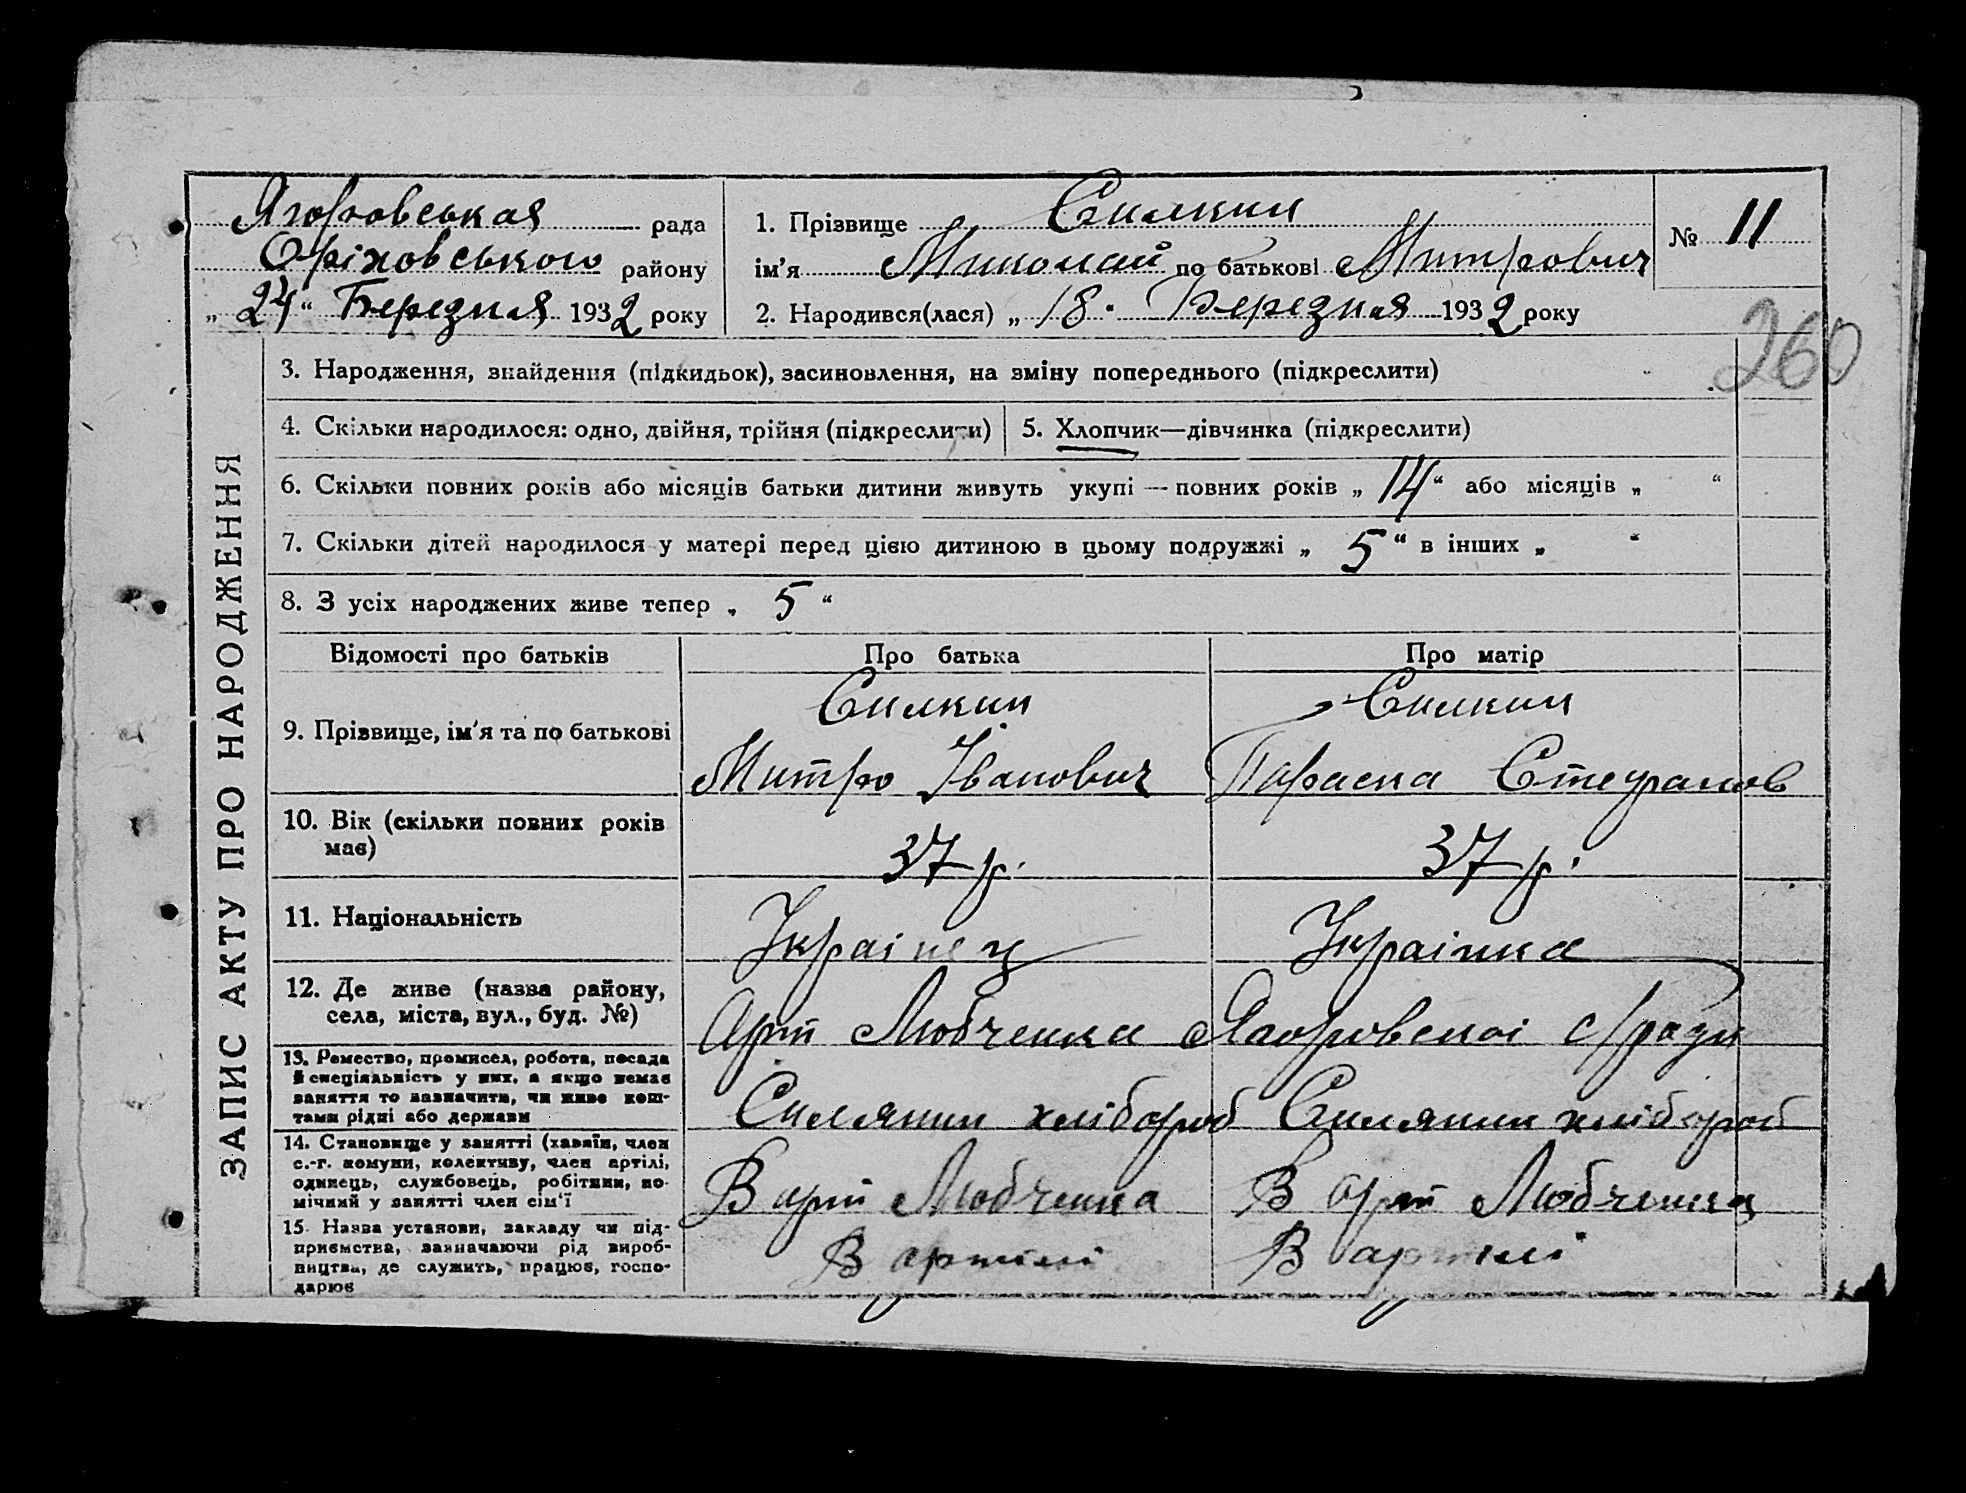 Ягоровськая рада
Оріховського району
„ 24 “ Березня 1932 року
1. Прізвище Силкин
ім’я Миколай по батькові Митрович
2. Народився(лася) „ 18 “ Березня 1932 року
№ 11
260
ЗАПИС АКТУ ПРО НАРОДЖЕННЯ
3. Народження, знайдення (підкидьок), засиновлення, на зміну попереднього (підкреслити)
4. Скільки народилося: одно, двійня, трійня (підкреслити)
5. Хлопчик—дівчинка (підкреслити)
6. Скільки повних років або місяців батьки дитини живуть укупі — повних років „ 14 “ або місяців „ “
7. Скільки дітей народилося у матері перед цією дитиною в цьому подружжі „ 5 “ в інших „ “
8. З усіх народжених живе тепер „ 5 “
Відомості про батьків
Про батька
Про матір
9. Прізвище, ім’я та по батькові
Силкин
Митро Іванович
Силкин
Параска Степанов
10. Вік (скільки повних років
має)
37 р.
37 р.
11. Національність
Українец
Українка
12. Де живе (назва району,
села, міста, вул., буд. №)
Арт Любченка
с/ради
13. Ремество, промисел, робота, посада
й спеціяльність у них, а якщо немає
заняття то зазначити, чи живе кош-
тами рідні або держави
Силянин хлібороб
Силянин хлібороб
14. Становище у занятті (хазяїн, член
с.-г. комуни, колективу, член артілі,
одинець, службовець, робітник, по-
мічний у занятті член сім’ї
В арт Любченка
В арт Любченка
15. Назва установи, закладу чи під-
приємства, зазначаючи рід вироб-
ництва, де служить, працює, госпо-
дарює
В артілі
В артілі